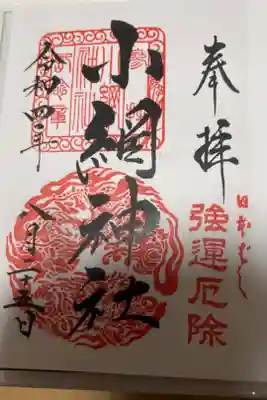 奉拝
日本ばし
強運厄除
小網神社
令和四年
八月十五日